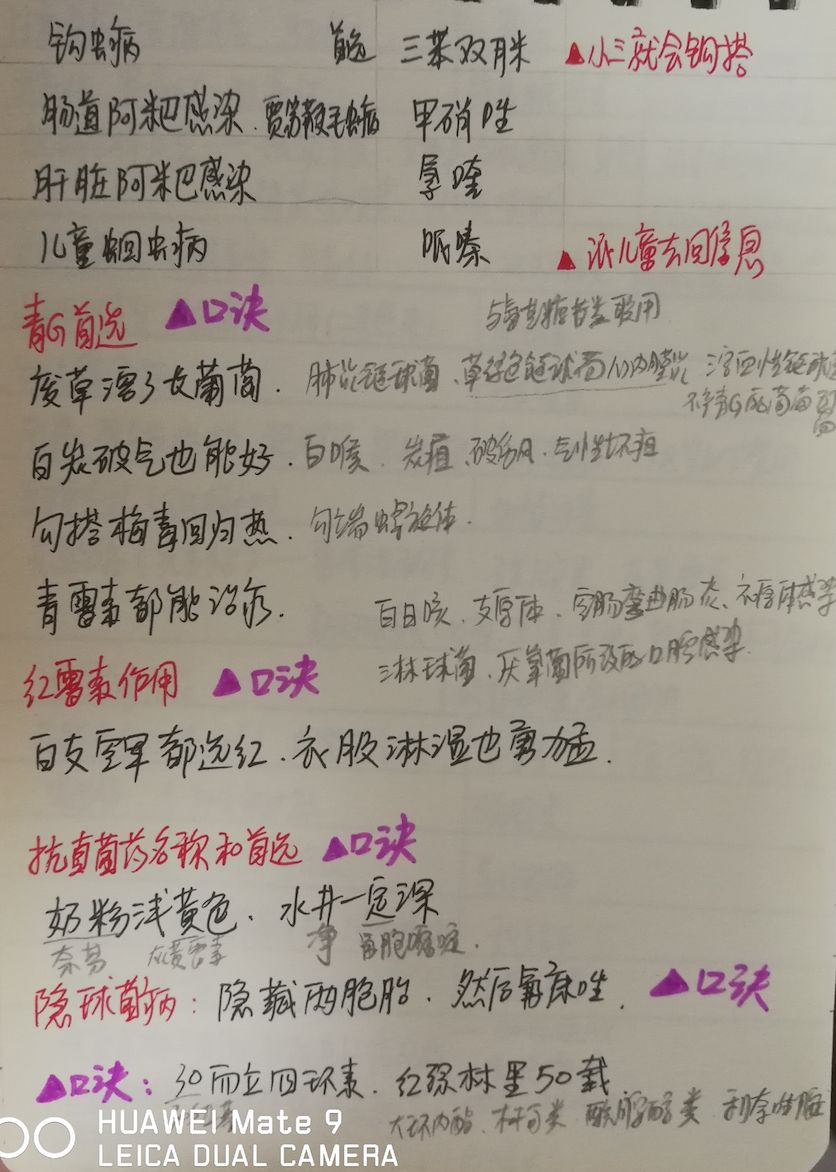 钩虫病 首选 三苯双脒 ▲小三就会钩搭
肠道阿米巴感染.贾第鞭毛虫病 甲硝唑
肝脏阿米巴感染 氯喹
儿童蛔虫病 哌嗪 ▲派儿童去回信息
青G首选 ▲口诀
与氨基糖苷类联用
废草溶了大葡萄. 肺炎链球菌、草绿色链球菌心内膜炎 溶血性链球菌
不产青G酶葡萄球菌
白炭破气也能好. 白喉、炭疽、破伤风、气性坏疽
勾搭梅毒回归热. 勾端螺旋体.
青霉素都能治疗.
百日咳、支原体、空肠弯曲肠炎、衣原体感染
淋球菌、厌氧菌所致的口腔感染.
红霉素作用 ▲口诀
百支空军都选红.衣服淋湿也勇猛.
抗真菌药名称和首选 ▲口诀
奶粉浅黄色、水井一定深
奈芬 灰黄霉素 净 氟胞嘧啶.
隐球菌病: 隐藏两胞胎.然后氟康唑. ▲口诀
▲口诀: 30而立四环素.红绿林里50载
大环内酯、林可类、酰胺醇类、利奈唑胺
HUAWEI Mate 9
LEICA DUAL CAMERA